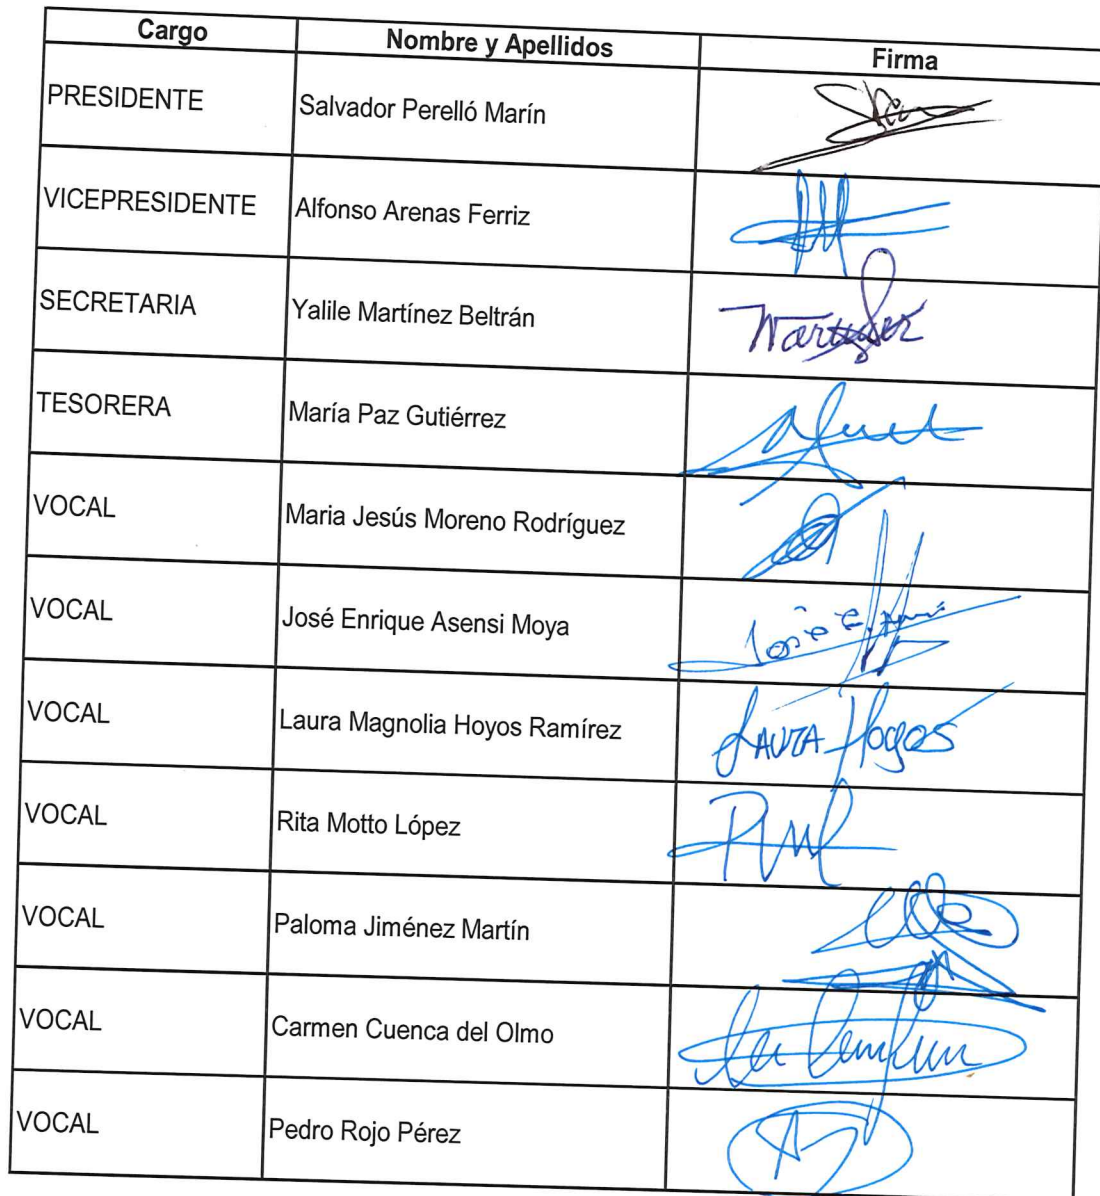 Cargo Nombre y Apellidos Firma
PRESIDENTE Salvador Perelló Marín
VICEPRESIDENTE Alfonso Arenas Ferriz
SECRETARIA Yalile Martínez Beltrán
TESORERA María Paz Gutiérrez
VOCAL Maria Jesús Moreno Rodríguez
VOCAL José Enrique Asensi Moya José E.
VOCAL Laura Magnolia Hoyos Ramírez LAURA Hoyos
VOCAL Rita Motto López
VOCAL Paloma Jiménez Martín
VOCAL Carmen Cuenca del Olmo
VOCAL Pedro Rojo Pérez